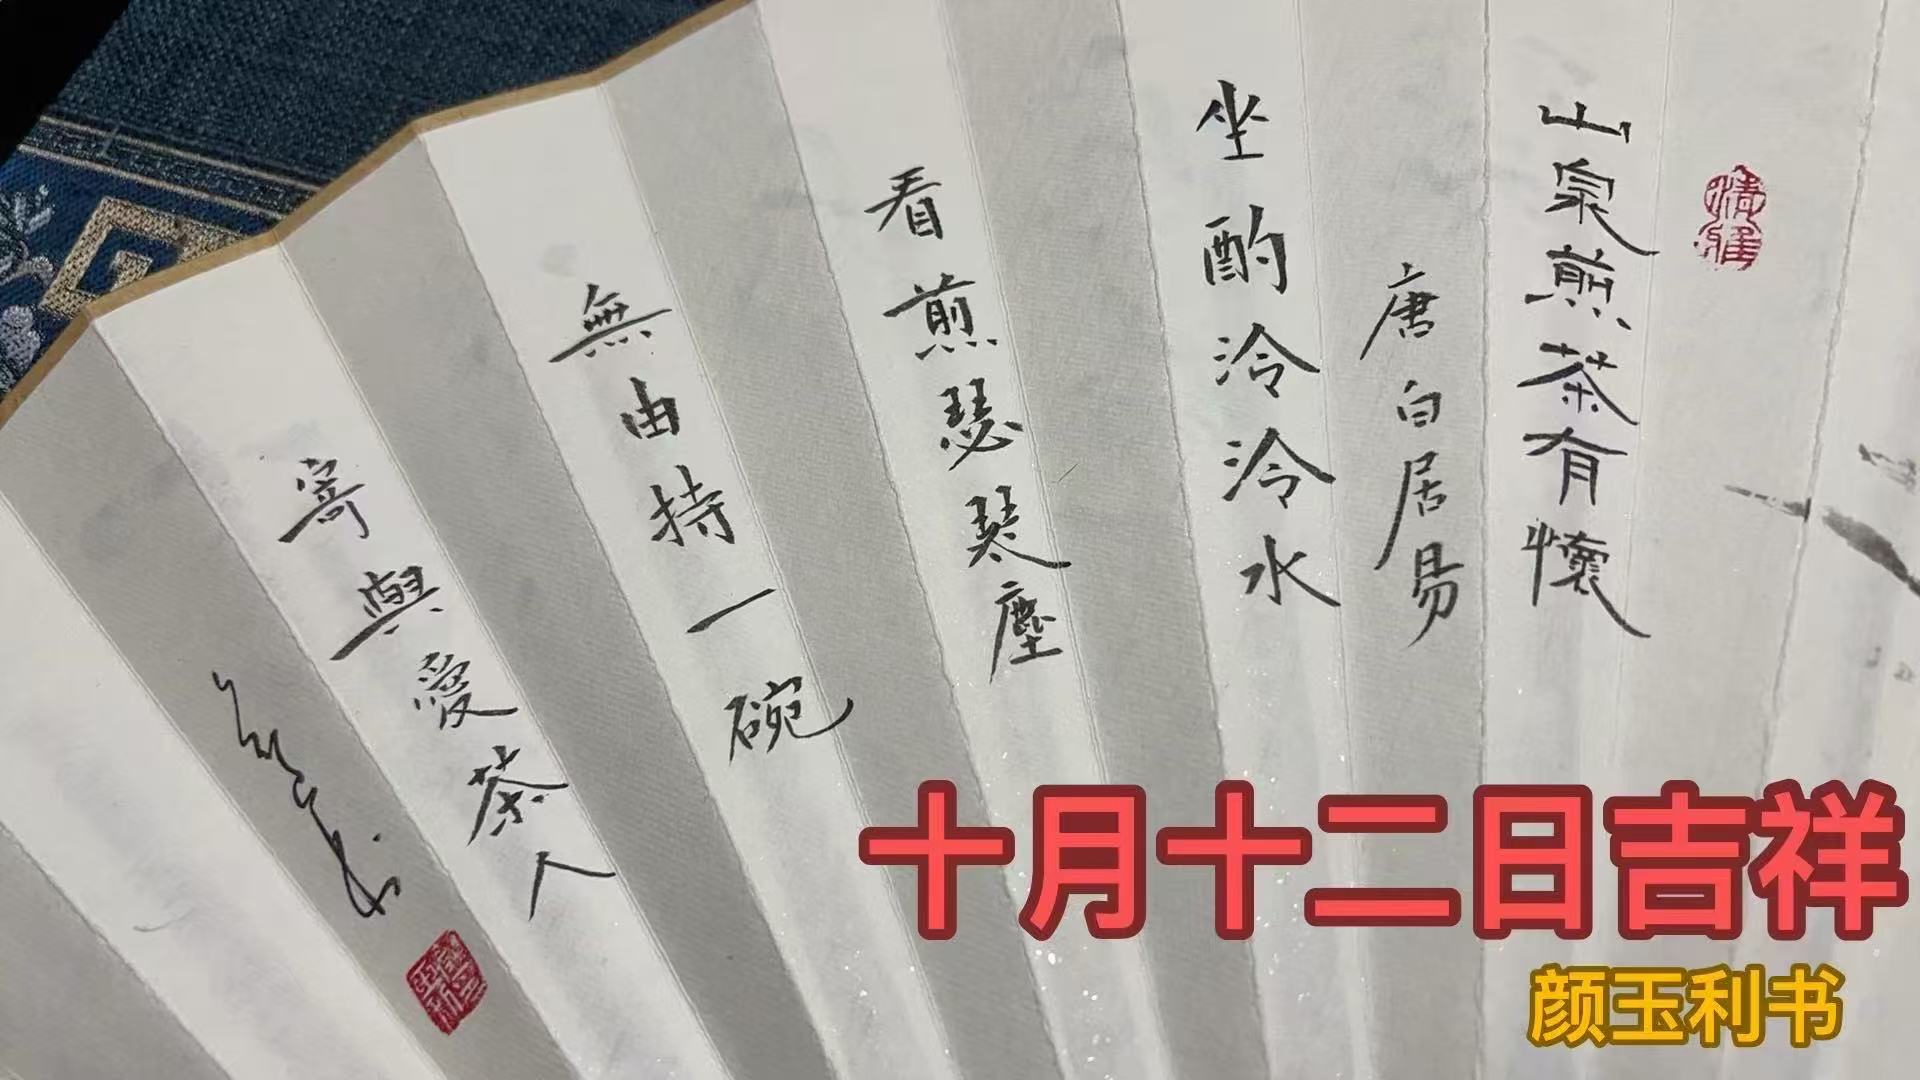 山泉煎茶有懷
唐白居易
坐酌泠泠水
看煎瑟瑟塵
無由持一碗
寄與愛茶人
十月十二日吉祥
颜玉利书